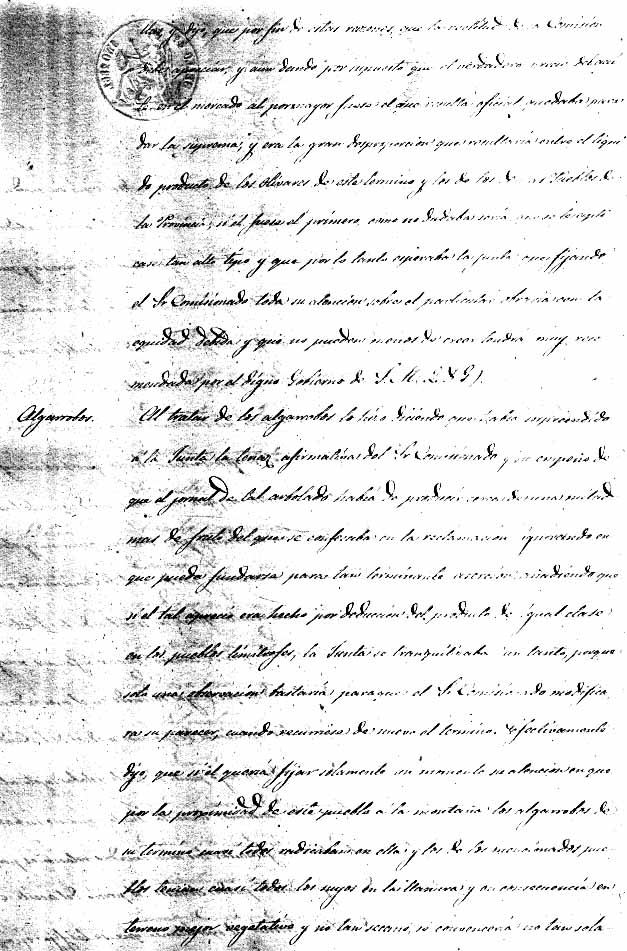 y dijo, que por fin de estas razones, que la rectitud de la Comision
y aun dando por supuesto que el verdadero precio del acei
te en el mercado al por mayor fuese el que resulta oficial quedaba para
dar la suprema, y era la gran desproporcion que resultaria entre el liqui
do producto de los Olivares de este termino y los de los de los Pueblos de
la Provincia, si él fuese el primero, como no dudaba seria que se le apli
case tan alto tipo y que por lo tanto esperaba la Junta que fijando
el Sr Comisionado toda su atencion sobre el particular obraria con la
equidad debida y que no pueden menos de creer tendrá muy reco
mendada por el digno Gobierno de S. M. (Q. D. G.)
Algarrobos. Al tratar de los algarrobos lo hizo diciendo, que habia sorprendido
á la Junta la tenaz afirmativa del Sr Comisionado y su empeño de
que el jornal de tal arbolado habia de producir cerca de una mitad
mas de fruto del que se confesaba en la reclamacion ignorando en
que pueda fundarse para tan terminante asercion, añadiendo que
si el tal aprecio era hecho por deduccion del producto de igual clase
en los pueblos limitrofes, la Junta se tranquilizaba un tanto, porque
sola una observacion bastaria para que el Sr Comisionado modifica
ra su parecer, cuando recurriese de nuevo el termino. Efectivamente
dijo, que si él queria fijar solamente un momento su atencion en que
por la proximidad de este pueblo a la montaña los algarrobos de
su termino casi todos radicaban en ella y los de los mencionados pue
blos tenian cuasi todos los suyos en la llanura y en consecuencia en
terreno mejor vegetativo y no tan secano, se convenceria no tan sola